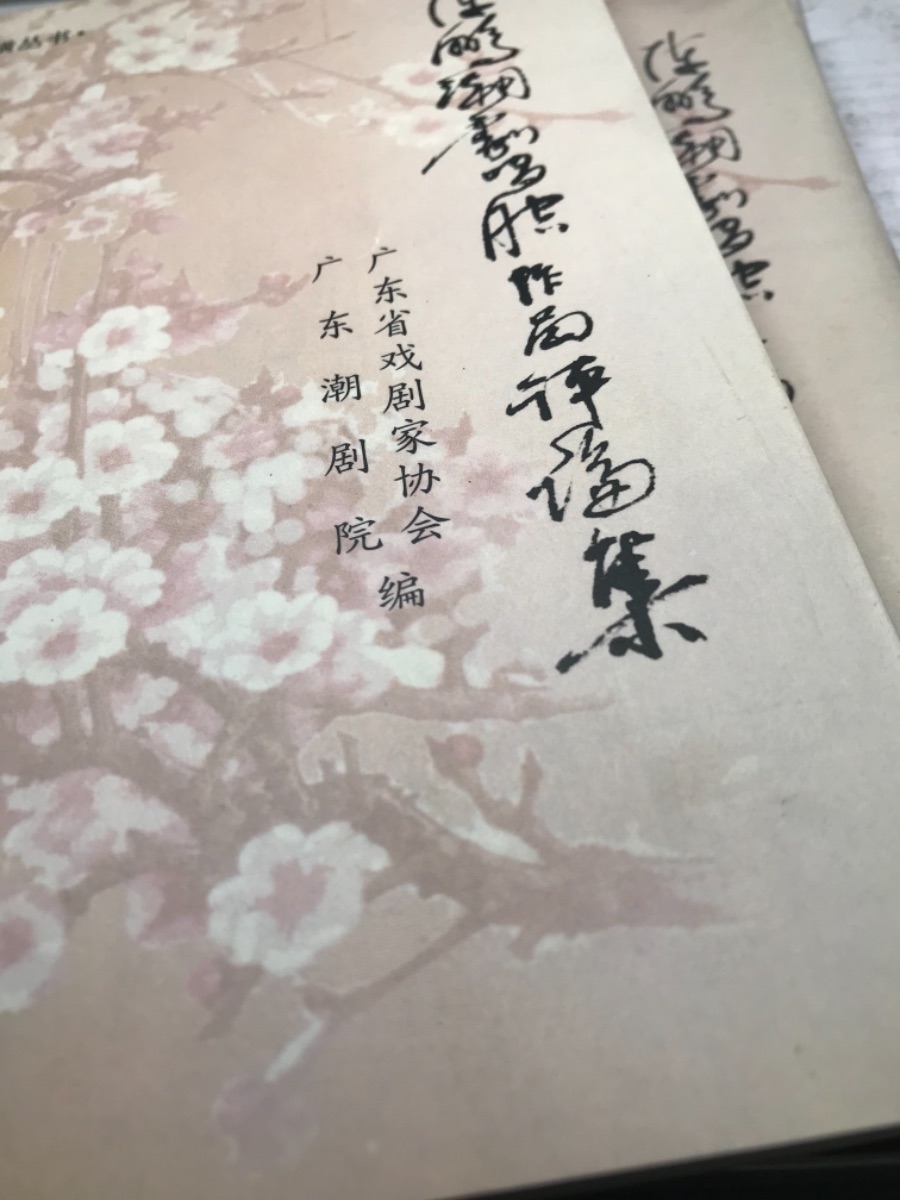 丛书·
陈鹏潮剧唱腔作品评论集
广东省戏剧家协会
广东潮剧院
编
陈鹏潮剧唱腔